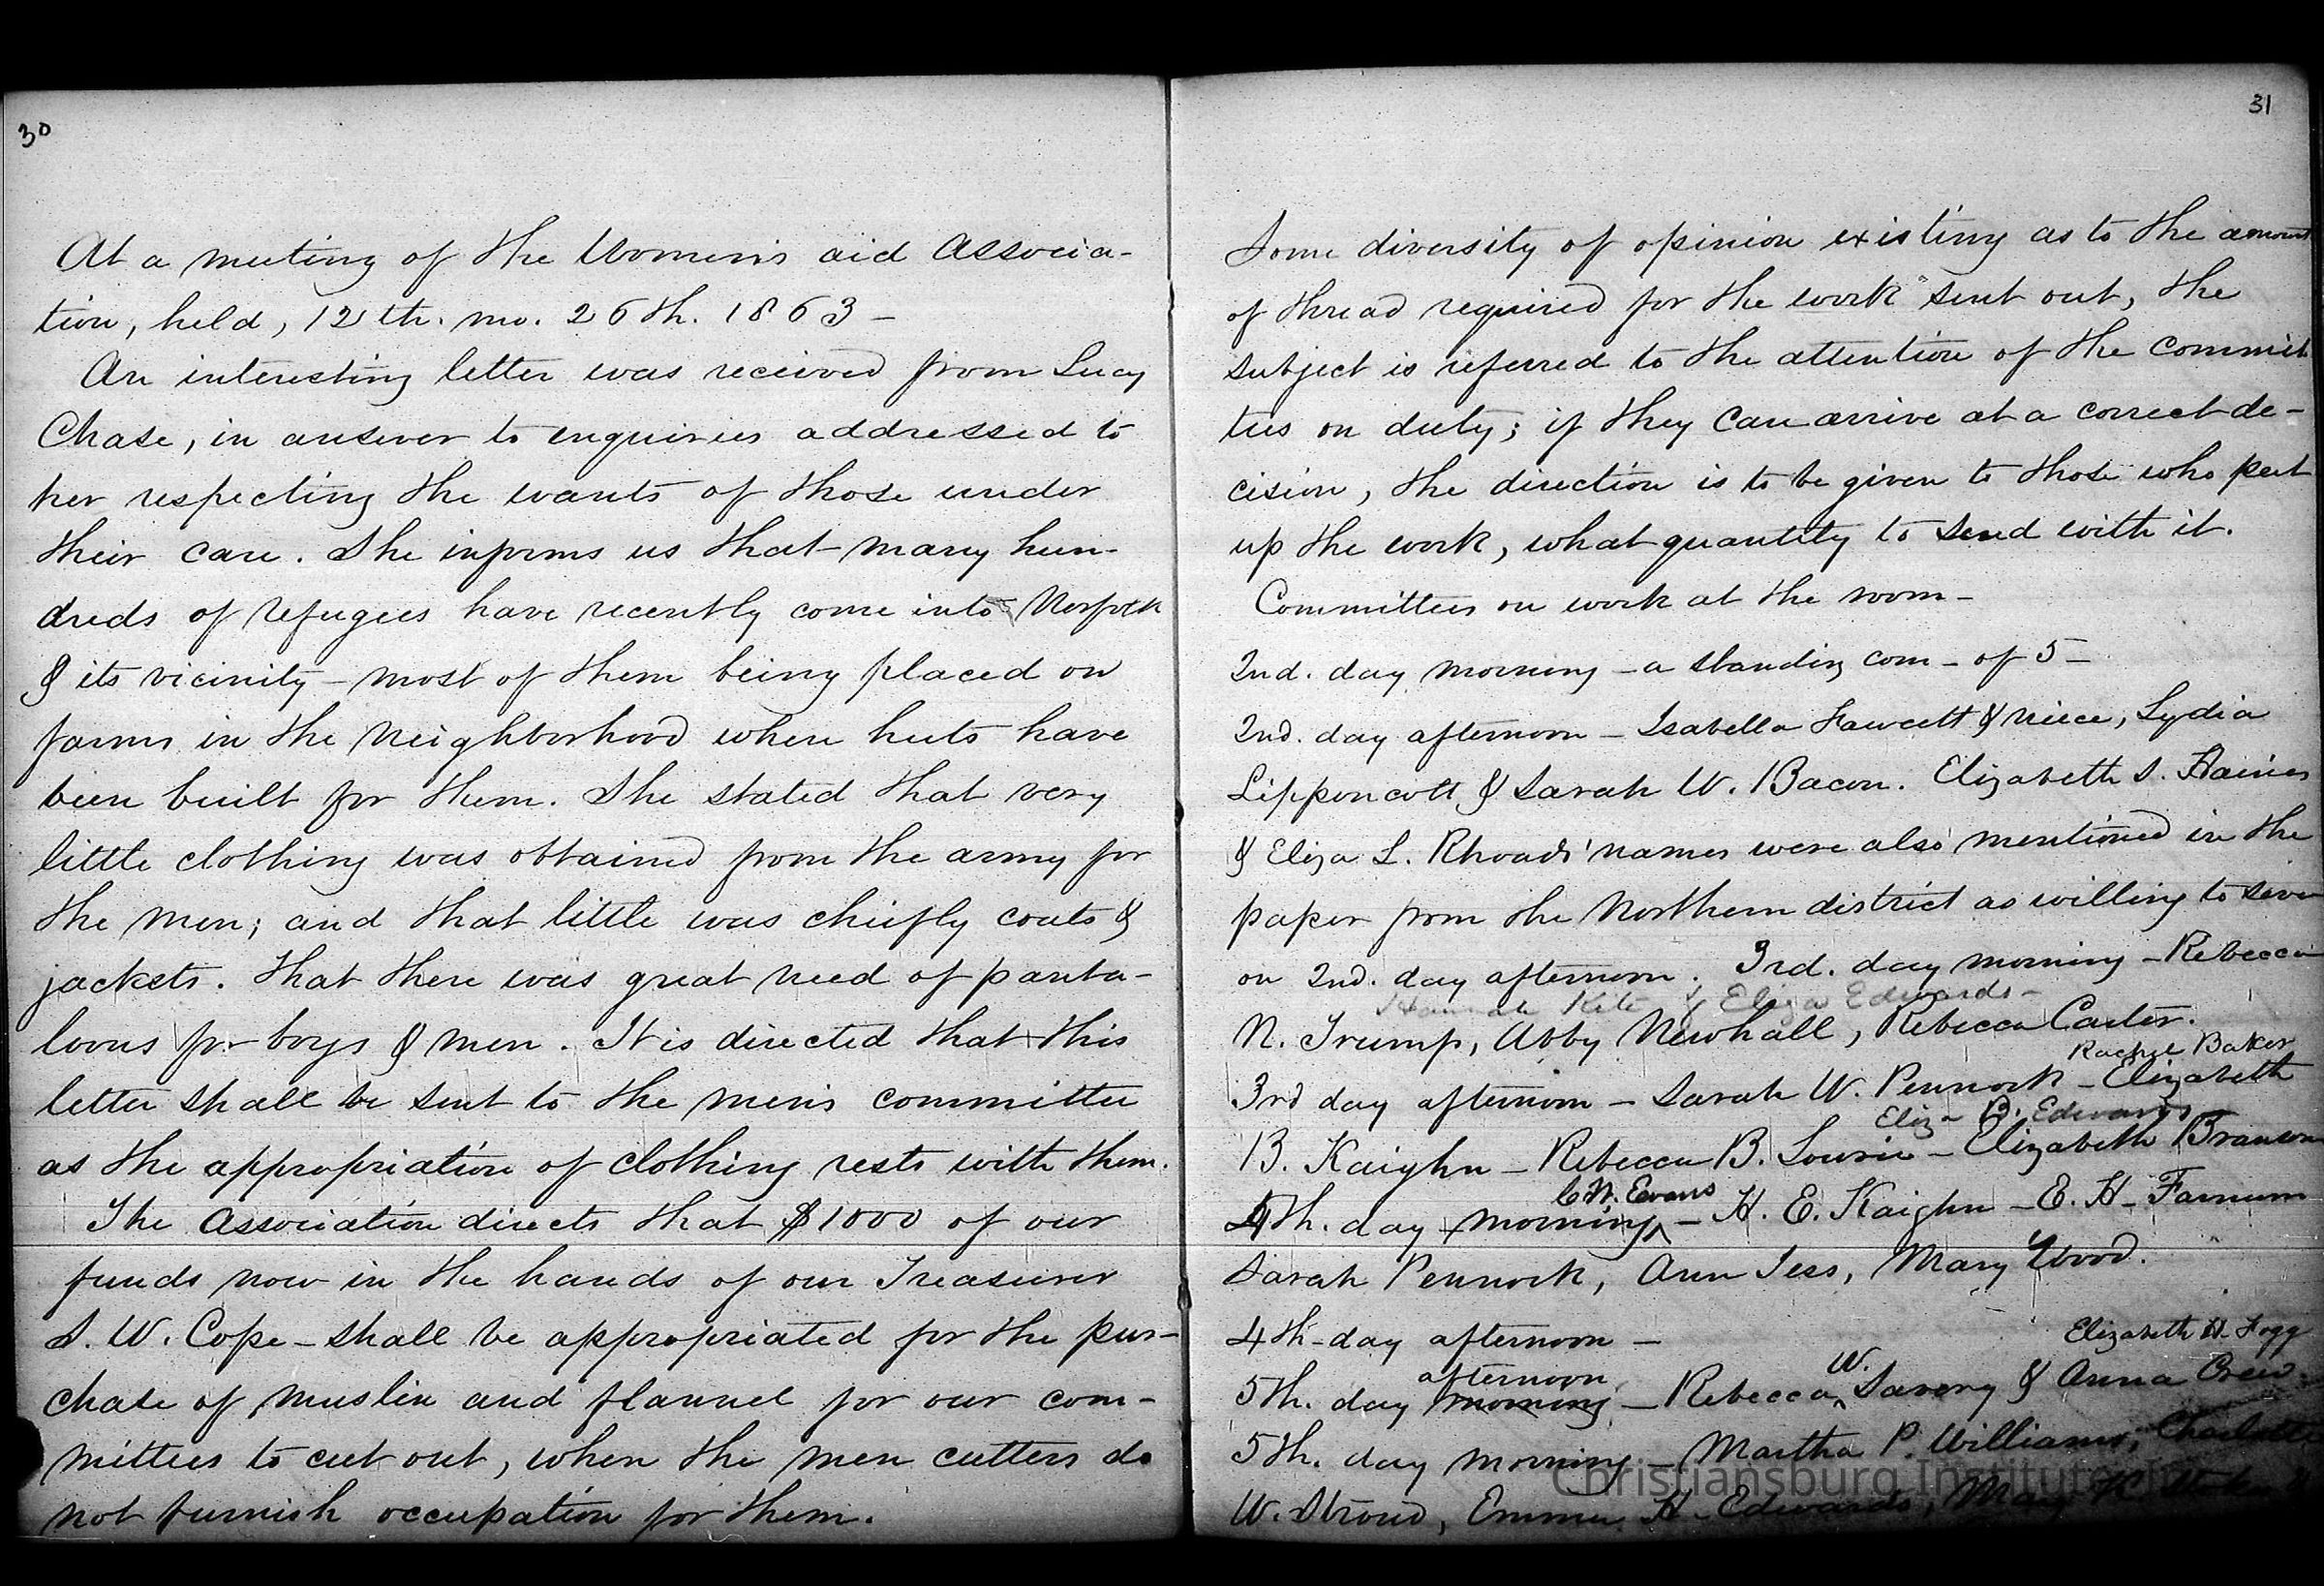 30
At a meeting of the Women's aid Associa-
tion, held, 12th. mo. 26th. 1863 -
An interesting letter was received from Lucy
Chase, in answer to enquiries addressed to
her respecting the wants of those under
their care. She informs us that many hun-
dreds of refugees have recently come into Norfolk
& its vicinity - most of them being placed on
farms in the neighborhood where huts have
been built for them. She stated that very
little clothing was obtained from the army for
the men; and that little was chiefly coats &
jackets. That there was great need of panta-
loons for boys & men. It is directed that this
letter shall be sent to the men's committee
as the appropriation of clothing rests with them.
The Association directs that $1000 of our
funds now in the hands of our Treasurer
S. W. Cope - shall be appropriated for the pur-
chase of muslin and flannel for our com-
mittees to cut out, when the men cutters do
not furnish occupation for them.
31
Some diversity of opinion existing as to the amount
of thread required for the work sent out, the
subject is referred to the attention of the commit
tees on duty; if they can arrive at a correct de-
cision, the direction is to be given to those who put
up the work, what quantity to send with it.
Committees on work at the room -
2nd. day morning - a standing com - of 5 -
2nd. day afternoon - Isabella Fawcett & niece, Lydia
Lipponcott & Sarah W. Bacon. Elizabeth S. Haines
& Eliza L. Rhoads' names were also mentioned in the
paper from the Northern district as willing to serve
on 2nd. day afternoon. 3rd. day morning - Rebecca
Hannah Kite & Eliza Edwards -
N. Trump, Abby Newhall, Rebecca Carter.
Rachel Baker
3rd day afternoon - Sarah W. Pennock - Elizabeth
Eliza B. Edwards
B. Kaighn - Rebecca B. Lowrie - Elizabeth Branson
C. W. Evans
4th. day morning - H. E. Kaighn - E. H. Farnum
Sarah Pennock, Ann Jess, Mary Wood.
4th day afternoon -
Elizabeth H. Fogg
afternoon W.
5th. day morning - Rebecca Savery & Anna Crew
5th. day morning - Martha P. Williams, Charlotte
W. Stroud, Emma H. Edwards, Mary
Christiansburg Institute